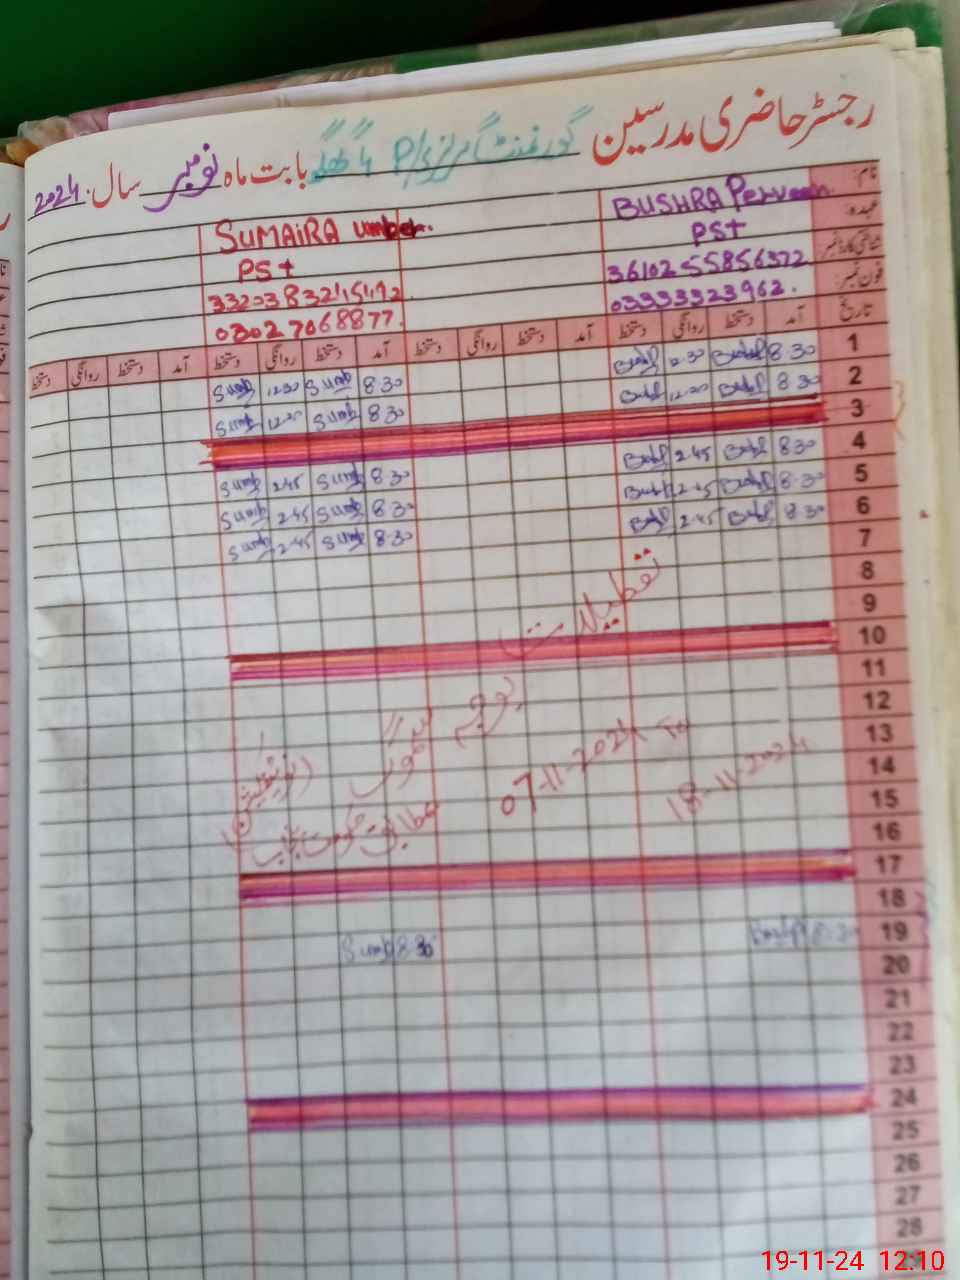 رجسٹر حاضری مدرسین گورنمنٹ گرلز P/ بابت ماہ نومبر سال 2024
نام: BUSHRA Perveen SUMAIRA Umber.
عہدہ: PST PST
شناختی کارڈ نمبر 3610255856372
فون نمبر: 03333323962. 03027068877.
تاریخ آمد دستخط روانگی دستخط آمد دستخط روانگی دستخط آمد دستخط روانگی دستخط
1 8.30 12.30 8.30 Sumb 12.30 Sumb
2 8.30 8.30 Sumb Sumb
3
4 8.30 2.45 8.30 Sumb 2.45 Sumb
5 8.30 2.45 8.30 Sumb 2.45 Sumb
6 8.30 2.45 8.30 Sumb 2.45 Sumb
7
8
تعطیلات
9
10
11
12
بوجہ سموگ
13
07-11-2024 To
14
18-11-2024
15
مطابق حکومت پنجاب
16
17
18
19 8:30 Sumb 8:30
20
21
22
23
24
25
26
27
28
29
19-11-24 12:10